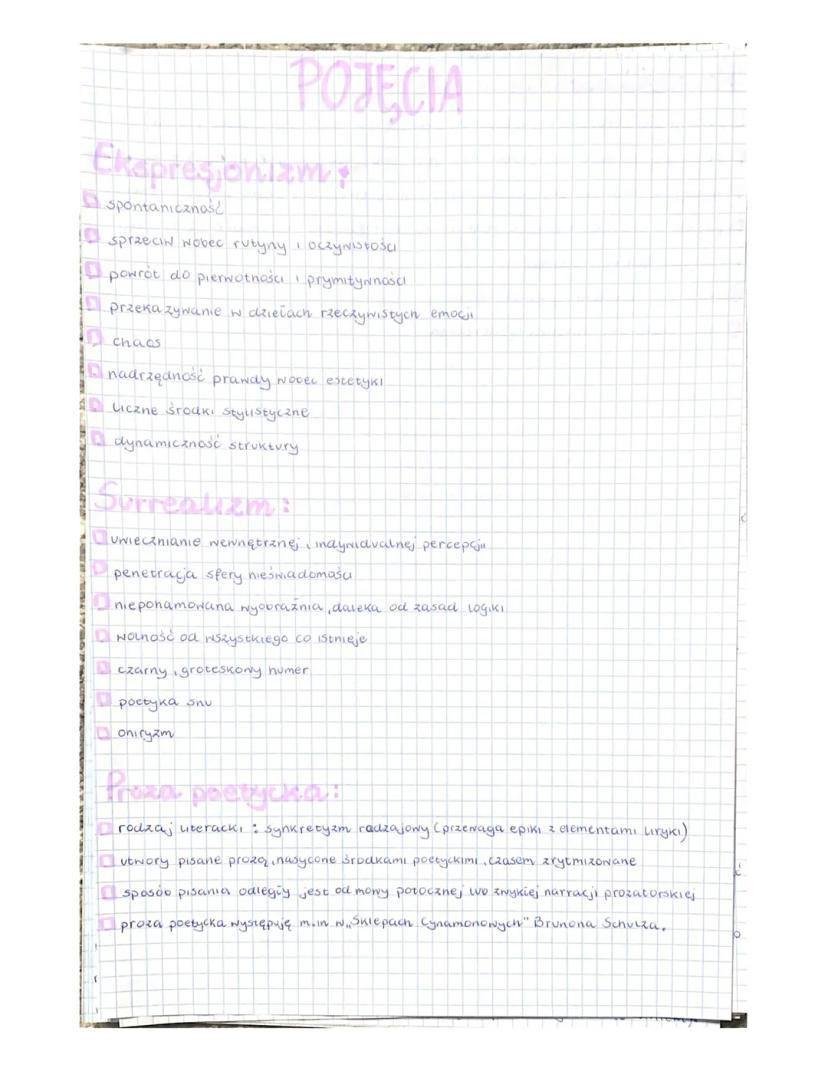 POJĘCIA
Ekspresjonizm:
spontaniczność
sprzeciw wobec rutyny i oczywistości
powrót do pierwotności i prymitywności
przekazywanie w dziełach rzeczywistych emocji
chaos
nadrzędność prawdy wobec estetyki
liczne środki stylistyczne
dynamiczność struktury
Surrealizm:
uwiecznianie wewnętrznej, indywidualnej percepcji
penetracja sfery nieświadomości
niepohamowana wyobraźnia, daleka od zasad logiki
wolność od wszystkiego co istnieje
czarny, groteskowy humer
poetyka snu
oniryzm
Proza poetycka:
rodzaj literacki: synkretyzm radzajowy (przewaga epiki z elementami liryki)
utwory pisane prozą, nasycone środkami poetyckimi, czasem zrytmizowane
sposób pisania odległy jest od mowy potocznej lub zwykłej narracji prozatorskiej
proza poetycka występuję m.in w „Sklepach Cynamonowych" Brunona Schulza.